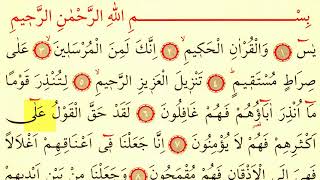 بِسْمِ اللّٰهِ الرَّحْمٰنِ الرَّحِيمِ
يٰسٓ ﴿١﴾ وَالْقُرْاٰنِ الْحَكِيمِ ﴿٢﴾ اِنَّكَ لَمِنَ الْمُرْسَلِينَ ﴿٣﴾ عَلٰى
صِرَاطٍ مُسْتَقِيمٍ ﴿٤﴾ تَنْزِيلَ الْعَزِيزِ الرَّحِيمِ ﴿٥﴾ لِتُنْذِرَ قَوْمًا
مَٓا اُنْذِرَ اٰبَٓاؤُ۬هُمْ فَهُمْ غَافِلُونَ ﴿٦﴾ لَقَدْ حَقَّ الْقَوْلُ عَلٰٓى
اَكْثَرِهِمْ فَهُمْ لَا يُؤْمِنُونَ ﴿٧﴾ اِنَّا جَعَلْنَا ف۪ٓي اَعْنَاقِهِمْ اَغْلَالًا
فَهِيَ اِلَى الْاَذْقَانِ فَهُمْ مُقْمَحُونَ ﴿٨﴾ وَجَعَلْنَا مِنْ بَيْنِ اَيْدِيهِمْ